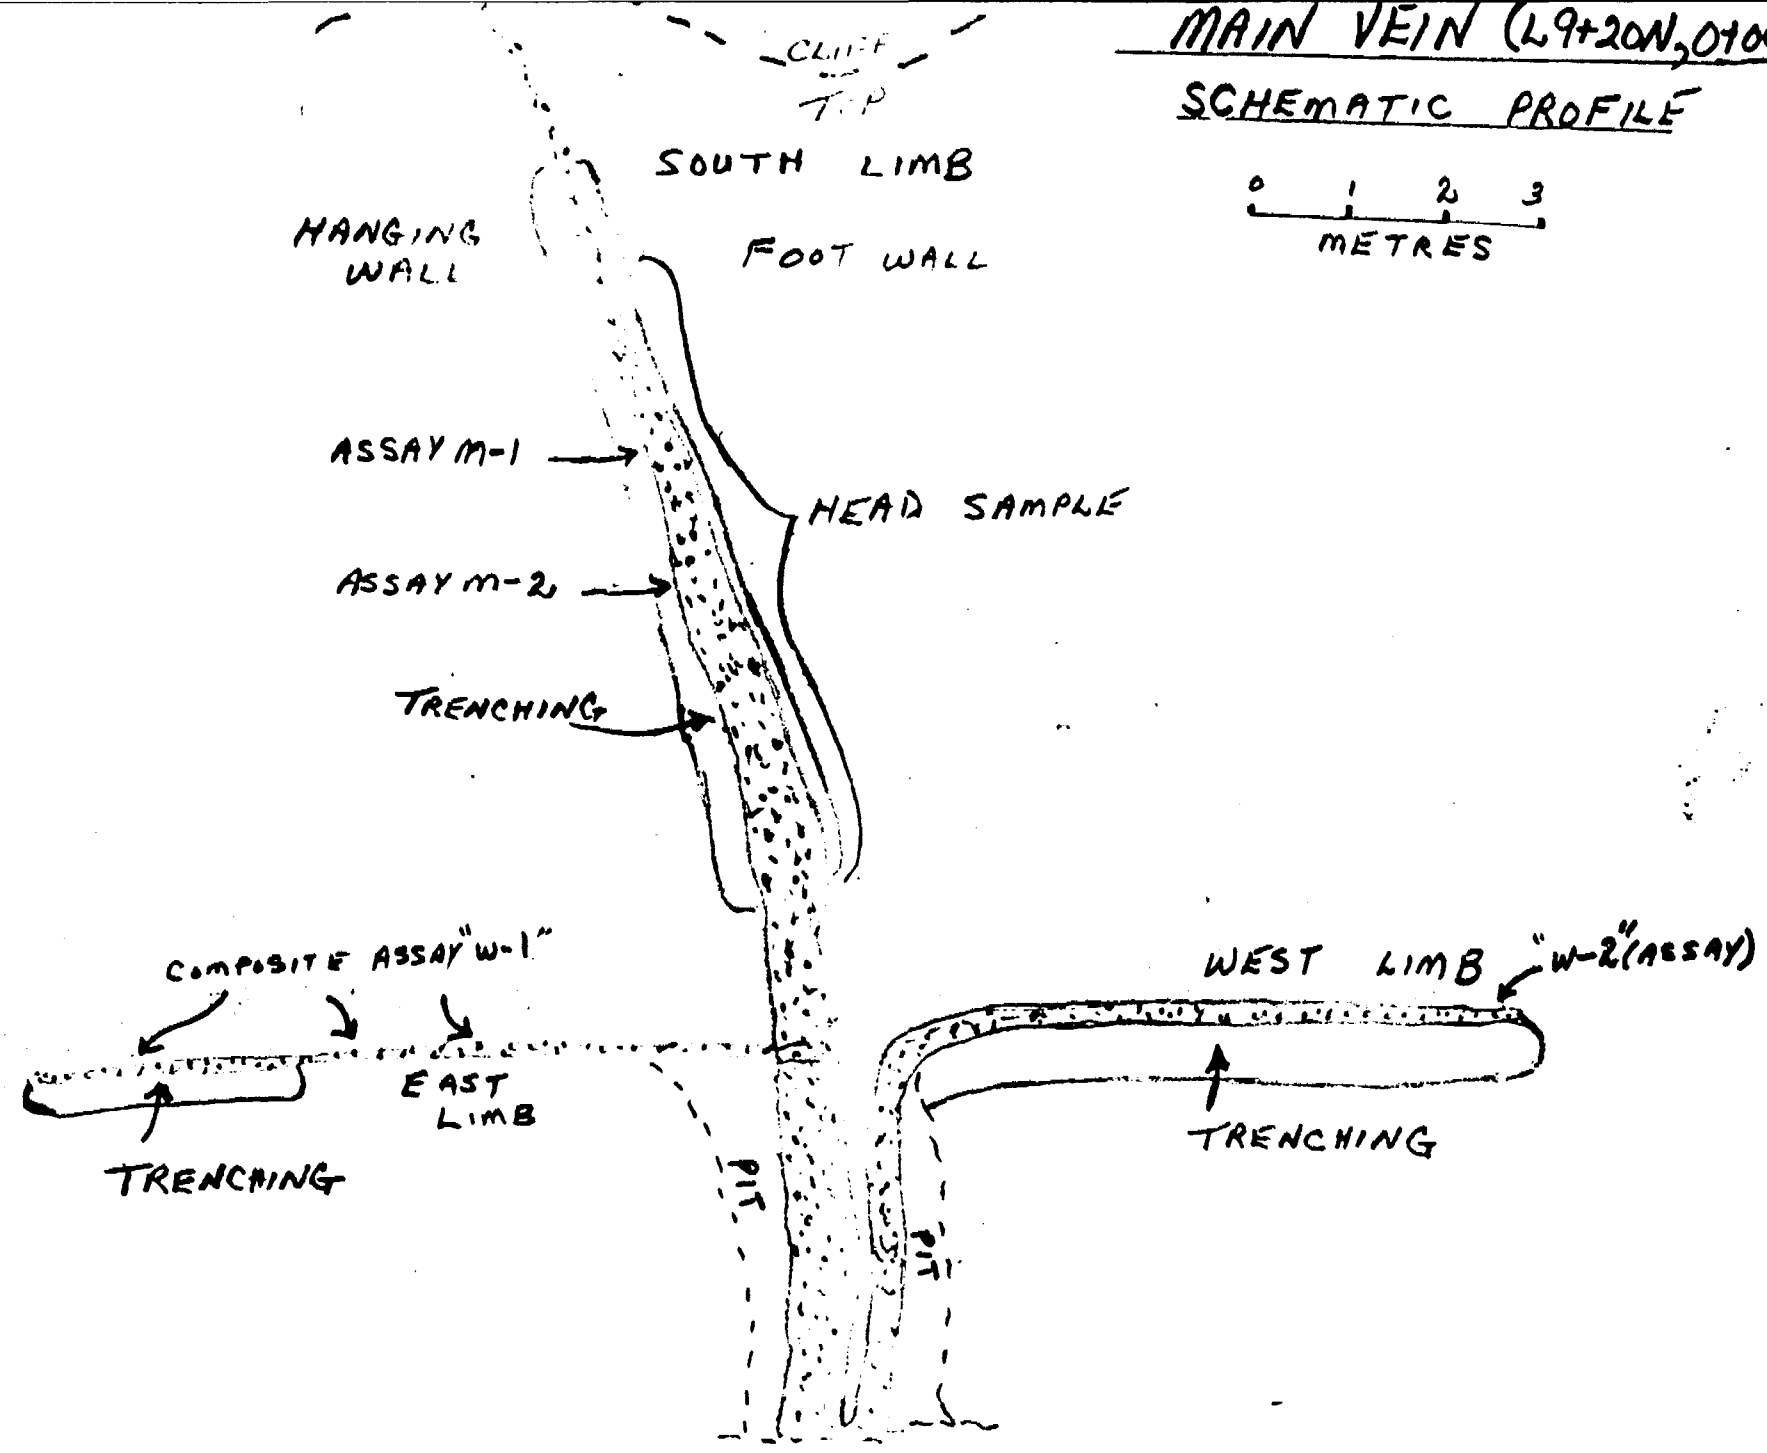 MAIN VEIN (L9+20N, 0+00
SCHEMATIC PROFILE
0 1 2 3
METRES
CLIFF
TOP
SOUTH LIMB
HANGING
WALL
FOOT WALL
ASSAY M-1
HEAD SAMPLE
ASSAY M-2
TRENCHING
COMPOSITE ASSAY "W-1"
WEST LIMB
"W-2" (ASSAY)
EAST
LIMB
TRENCHING
TRENCHING
PIT
PIT